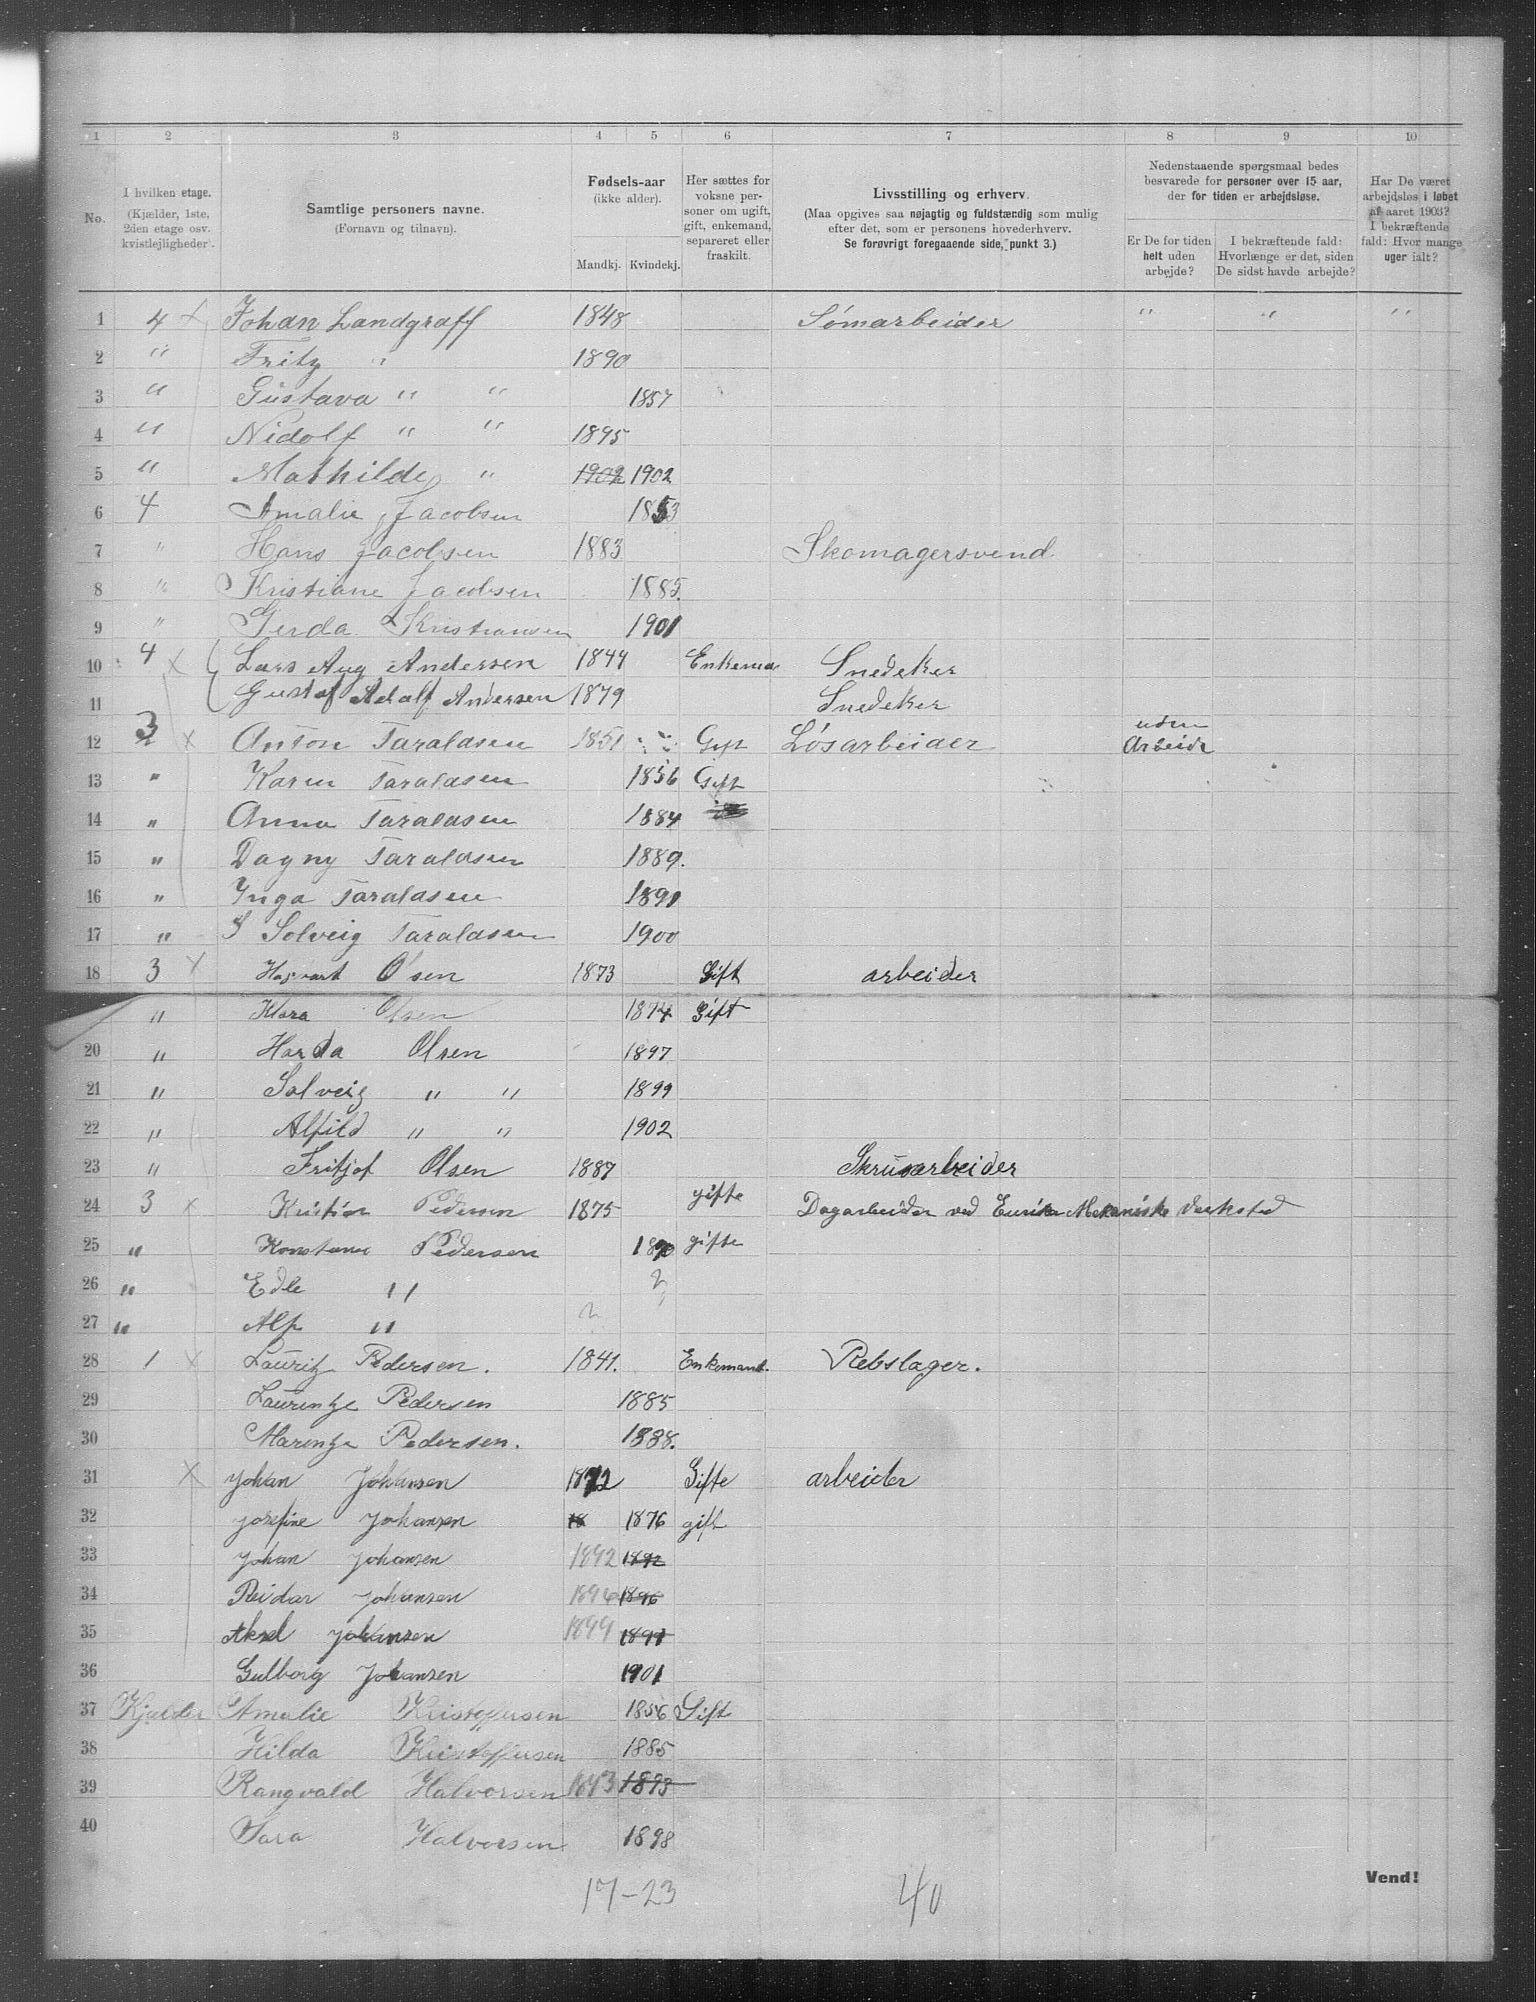 1 2 3 4 5 6 7 8 9 10
No.
I hvilken etage.
(Kjælder, 1ste,
2den etage osv.
kvistlejligheder).
Samtlige personers navne.
(Fornavn og tilnavn).
Fødsels-aar
(ikke alder).
Mandkj. Kvindekj.
Her sættes for
voksne per-
soner om ugift,
gift, enkemand,
separeret eller
fraskilt.
Livsstilling og erhverv.
(Maa opgives saa nøjagtig og fuldstændig som mulig
efter det, som er personens hovederhverv.
Se forøvrigt foregaaende side, punkt 3.)
Nedenstaaende spørgsmaal bedes
besvarede for personer over 15 aar,
der for tiden er arbejdsløse.
Er De for tiden
helt uden
arbejde?
I bekræftende fald:
Hvorlænge er det, siden
De sidst havde arbejde?
Har De været
arbejdsløs i løbet
af aaret 1903?
I bekræftende
fald: Hvor mange
uger ialt?
1 4 x Johan Landgraff 1848 Sömarbeider " " "
2 " Fritz " 1890
3 " Gustava " " 1857
4 " Nidolf " " 1895
5 " Mathilde " 1902 1902
6 4 Amalie Jacobsen 1853
7 " Hans Jacobsen 1883 Skomagersvend.
8 " Kristiane Jacobsen 1885.
9 " Gerda Kristiansen 1901
10 4 x Lars Aug Andersen 1844 Enkema Snedeker
11 Gustaf Adolf Andersen 1879 Snedeker
12 3 x Anton Taraldsen 1851 Gift Løsarbeider uden Arbeide
13 " Karen Taraldsen 1856 Gift
14 " Anna Taraldsen 1884
15 " Dagny Taraldsen 1889.
16 " Inga Taraldsen 1891
17 " S Solveig Taraldsen 1900
18 3 x Hagvart Olsen 1873 Gift arbeider
" Klara Olsen 1874 Gift
20 " Harda Olsen 1897
21 " Solveig " " 1899
22 " Alfild " " 1902
23 " Fritjof Olsen 1887 Skruearbeider
24 3 x Kristian Pedersen 1875 gifte Dagarbeider ved Eurika Mekaniske Verksted
25 " Konstanse Pedersen 1870 gifte
26 " Edle " ?
27 " Alf " ?
28 1 x Lauritz Pedersen. 1841. Enkemand. Rebslager.
29 Laurentze Pedersen 1885
30 Marentze Pedersen. 1888.
31 x Johan Johansen 1872 Gifte arbeider
32 Josefine Johansen 18 1876 gift
33 Johan Johansen 1892 1892
34 Reidar Johansen 1896 1896
35 Aksel Johansen 1899 1899
36 Gulborg Johansen 1901
37 Kjælder Amalie Kristoffersen 1856 Gift
38 Hilda Kristoffersen 1885
39 Rangvald Halvorsen 1893 1893
40 Sara Halvorsen 1898
17-23 40
Vend!